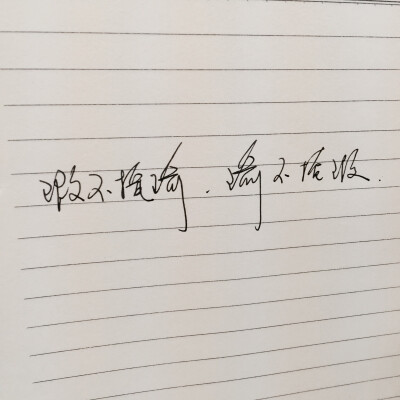 瑕不掩瑜.瑜不掩瑕.